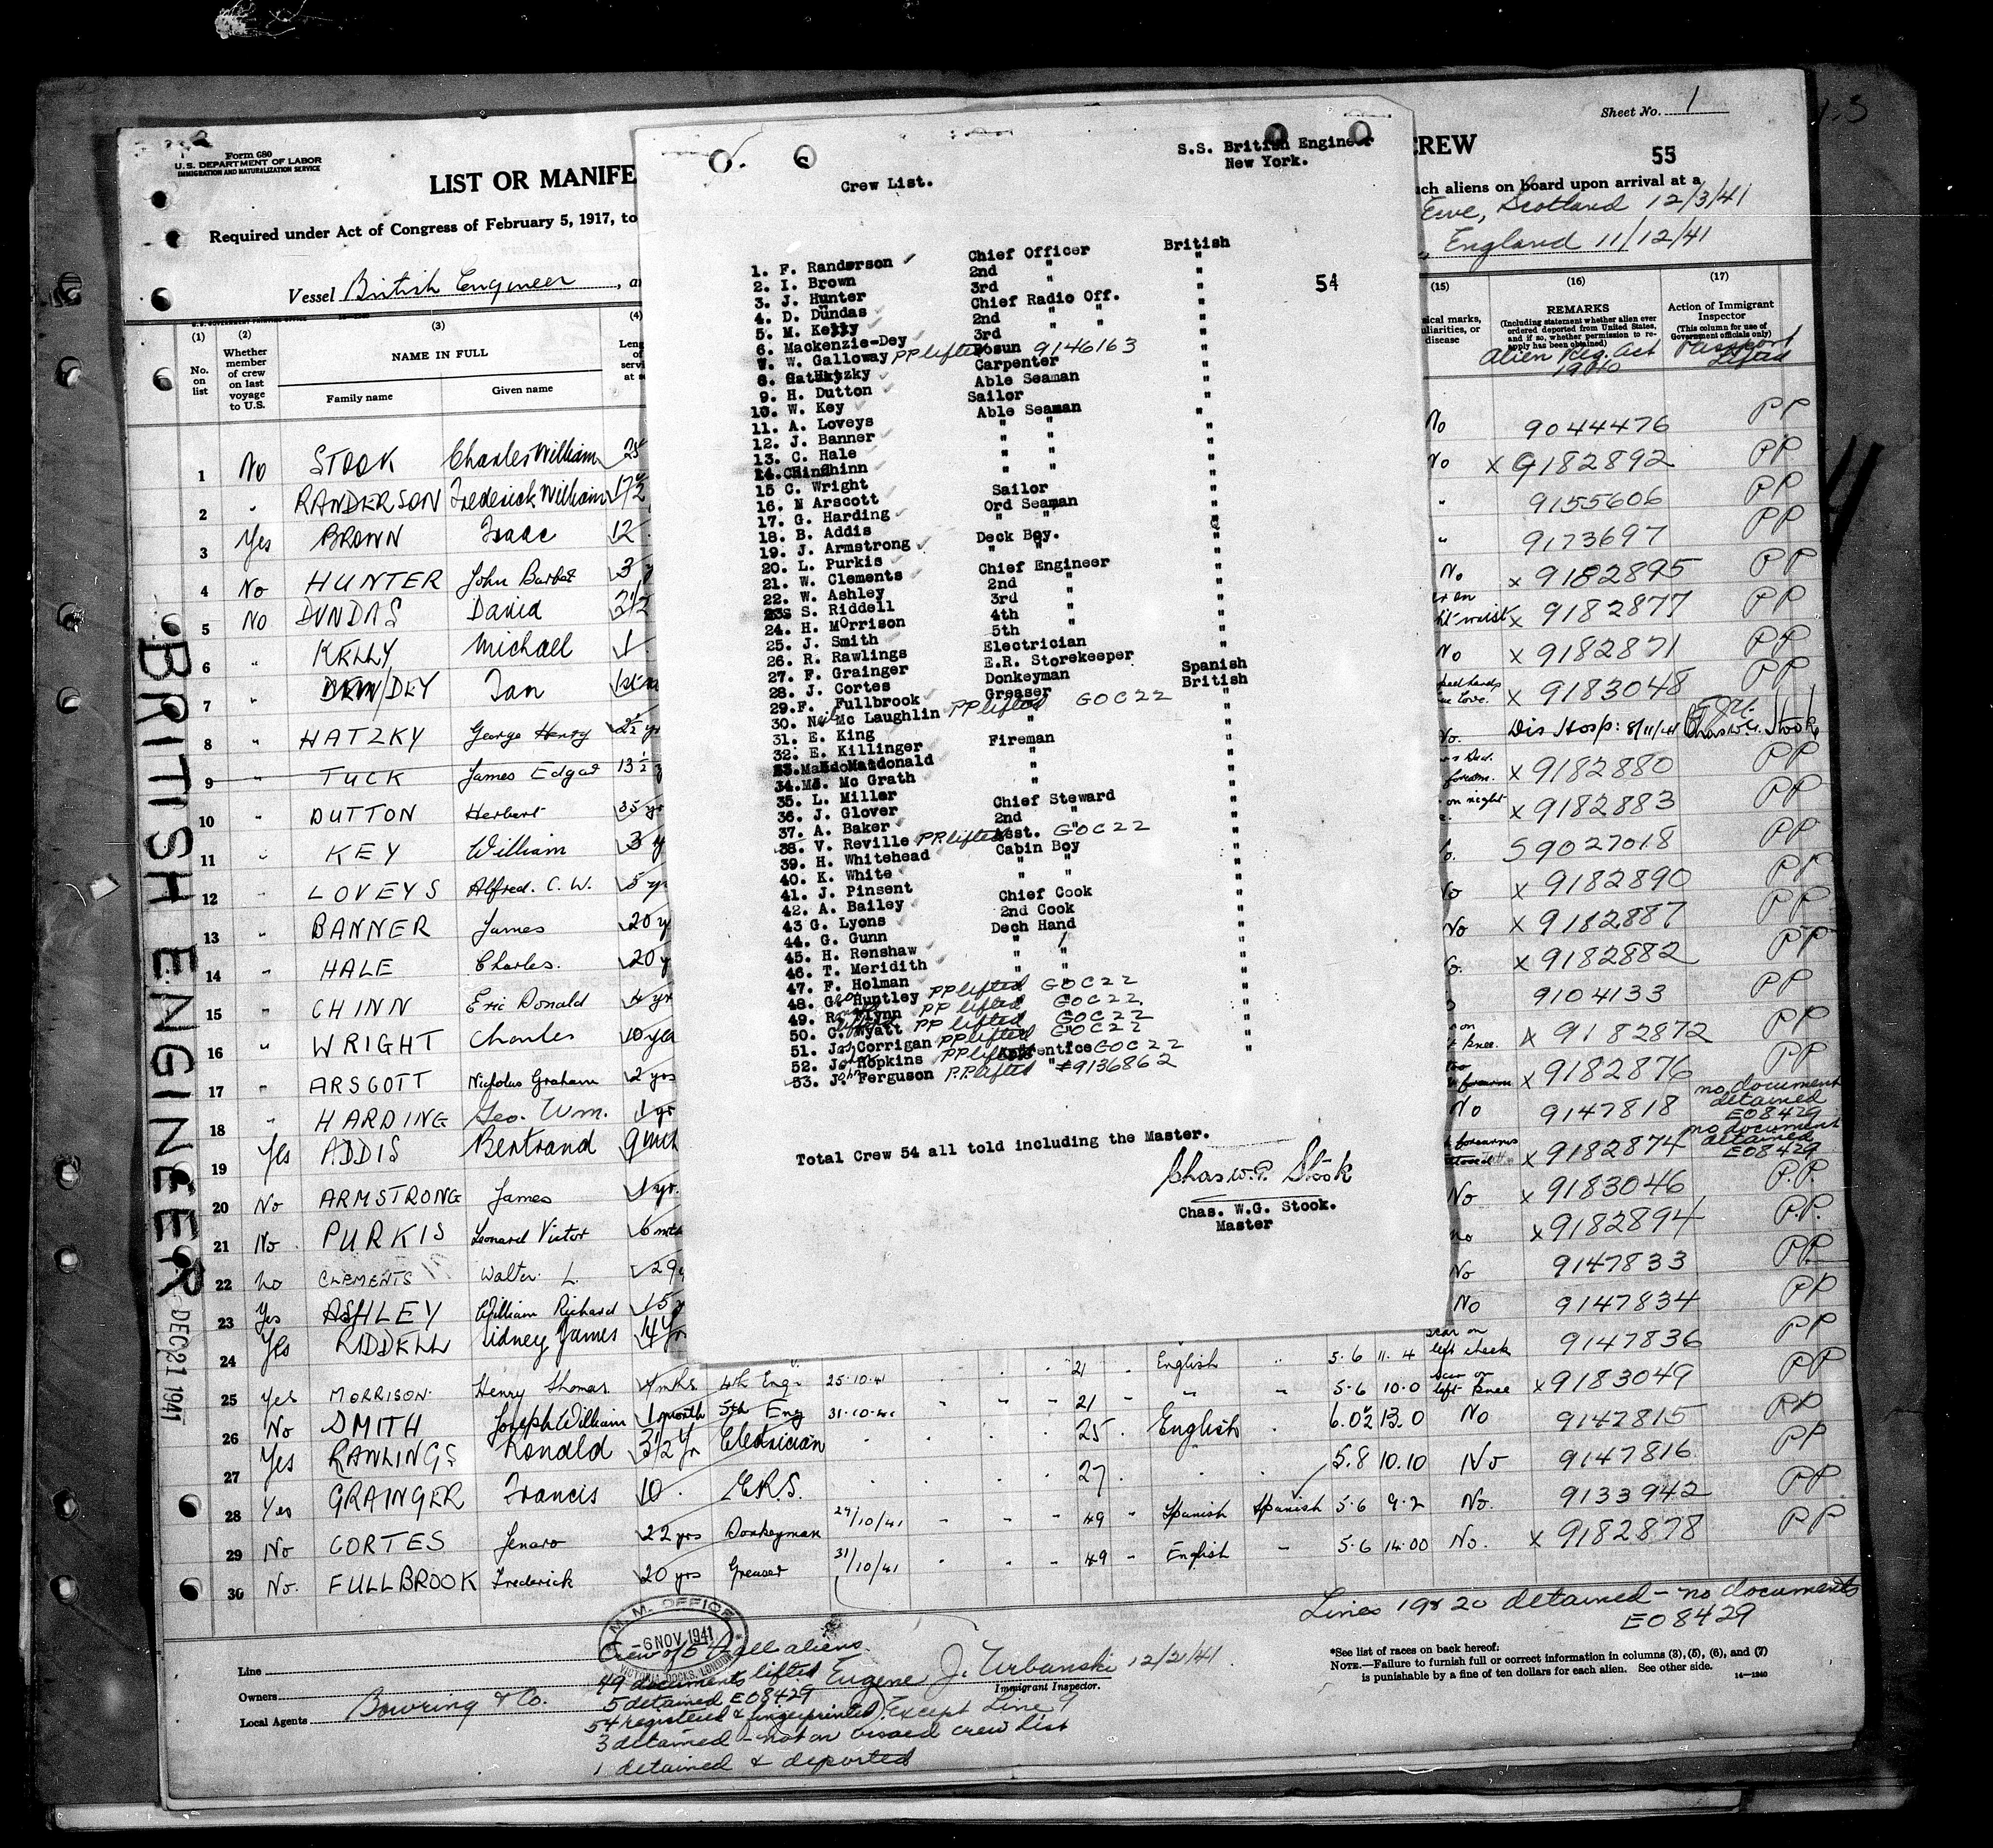 Sheet No. 1
Form 680
U.S. DEPARTMENT OF LABOR
IMMIGRATION AND NATURALIZATION SERVICE
LIST OR MANIFE
CREW
55
Required under Act of Congress of February 5, 1917, to
ch aliens on board upon arrival at a
Ewe, Scotland 12/3/41
England 11/12/41
Vessel British Engineer
S.S. British Engineer
New York.
Crew List.
54
1. F. Randerson Chief Officer British
2. I. Brown 2nd " "
3. J. Hunter 3rd " "
4. D. Dundas Chief Radio Off. "
5. M. Kelly 2nd " " "
6. Mackenzie-Dey 3rd " " "
7. W. Galloway PP lifted Bosun 9146163 "
8. Hatzky Carpenter "
9. H. Dutton Able Seaman "
10. W. Key Sailor "
11. A. Loveys Able Seaman "
12. J. Banner " " "
13. C. Hale " " "
14. Chinn " " "
15 C. Wright " " "
16. N Arscott Sailor "
17. G. Harding Ord Seaman "
18. B. Addis " " "
19. J. Armstrong Deck Boy. "
20. L. Purkis " " "
21. W. Clements Chief Engineer "
22. W. Ashley 2nd " "
23 S. Riddell 3rd " "
24. H. Morrison 4th " "
25. J. Smith 5th " "
26. R. Rawlings Electrician "
27. F. Grainger E.R. Storekeeper "
28. J. Cortes Donkeyman Spanish
29. F. Fullbrook Greaser British
30. Neil Mc Laughlin PP lifted " GOC22 "
31. E. King " "
32. E. Killinger Fireman "
33. Macdonald " "
34. M. Mc Grath " "
35. L. Miller " "
36. J. Glover Chief Steward "
37. A. Baker 2nd " "
38. V. Reville PP lifted Asst. GOC22 "
39. H. Whitehead Cabin Boy "
40. K. White " " "
41. J. Pinsent " " "
42. A. Bailey Chief Cook "
43 G. Lyons 2nd Cook "
44. G. Gunn Dech Hand "
45. H. Renshaw " " "
46. T. Meridith " " "
47. F. Holman " " "
48. Geo Huntley PP lifted " GOC22 "
49. R. Flynn PP lifted " GOC22 "
50. C. Wyatt PP lifted " GOC22 "
51. Jos Corrigan PP lifted " GOC22 "
52. John Hopkins PP lifted Apprentice GOC22 "
53. John Ferguson P.P. lifted " #9136862 "
Total Crew 54 all told including the Master.
Chas W.G. Stook
Chas. W.G. Stook.
Master
(1) (2) (3) (4) (15) (16) (17)
No. on list
Whether member of crew on last voyage to U.S.
NAME IN FULL
Family name Given name
REMARKS
(Including statement whether alien ever ordered deported from United States, and if so, whether permission to reapply has been obtained)
Alien Reg. Act 1940
Action of Immigrant Inspector
(This column for use of Government officials only)
Passport lifted
1 No STOOK Charles William 25 No 9044476 PP
2 " RANDERSON Frederick William 17½ No x 9182892 PP
3 Yes BROWN Isaac 12 " 9155606 PP
4 No HUNTER John Barbet 3 " 9173697 PP
5 No DUNDAS David 3½ No x 9182895 PP
6 " KELLY Michael 1 x 9182877 PP
7 " DEY Ian No x 9182871 PP
8 " HATZKY George Henry 2½ yr x 9183048 PP
9 " TUCK James Edgar 13½ No. Dis Hosp: 8/11/41 Chas W.G. Stook
10 " DUTTON Herbert 35 yr x 9182880 PP
11 " KEY William 3 y x 9182883 PP
12 " LOVEYS Alfred. C. W. 5 yr S9027018 PP
13 " BANNER James 20 y No x 9182890 PP
14 " HALE Charles. 20 y No x 9182887 PP
15 " CHINN Eric Donald 4 yr x 9182882 PP
16 " WRIGHT Charles 10 yea 9104133 PP
17 " ARSCOTT Nicholas Graham 2 yrs Knee. x 9182872 PP
18 " HARDING Geo. Wm. 1 yr x 9182876 PP
19 Yes ADDIS Bertrand 9 mth No 9147818 no document detained E08429
20 No ARMSTRONG James 1 yr. x 9182874 no document detained E08429
21 No PURKIS Leonard Victor 6 mts No x 9183046 P.P.
22 no CLEMENTS Walter L. 29 no x 9182894 P.P.
23 Yes ASHLEY William Richard 15 y No 9147833 PP
24 Yes RIDDELL Sidney James 14 yr No 9147834 PP
25 yes MORRISON Henry Thomas 4 mths 4th Eng. 25.10.41 21 English 5.6 11.4 scar on left cheek 9147836 PP
26 No SMITH Joseph William 1 month 5th Eng 31-10-41 21 " 5.6 10.0 scar on left Knee x 9183049 PP
27 Yes RAWLINGS Ronald 3½ Yr Electrician 25 English 6.0½ 13.0 No 9147815 PP
28 Yes GRAINGER Francis 10 E.R.S. 27 5.8 10.10 No 9147816 PP
29 No CORTES Jenaro 22 yrs Donkeyman 29/10/41 49 Spanish Spanish 5.6 9.2 No. 9133942 PP
30 No. FULLBROOK Frederick 20 yrs Greaser 31/10/41 49 English 5.6 14.00 No. x 9182878 PP
BRITISH ENGINEER
DEC 21 1941
Lines 19 & 20 detained - no documents
E08429
M.M. OFFICE
-6 NOV 1941
VICTORIA DOCKS, LONDON
Crew of 54 all aliens.
Line
49 documents lifted Eugene J. Urbanski 12/21/41
Immigrant Inspector.
Owners
5 detained E08429
Local Agents Bowring & Co.
54 registered & fingerprinted. Except Line 9
3 detained - not on visaed crew list
1 detained & deported
*See list of races on back hereof.
NOTE.—Failure to furnish full or correct information in columns (3), (5), (6), and (7)
is punishable by a fine of ten dollars for each alien. See other side.
14—1240